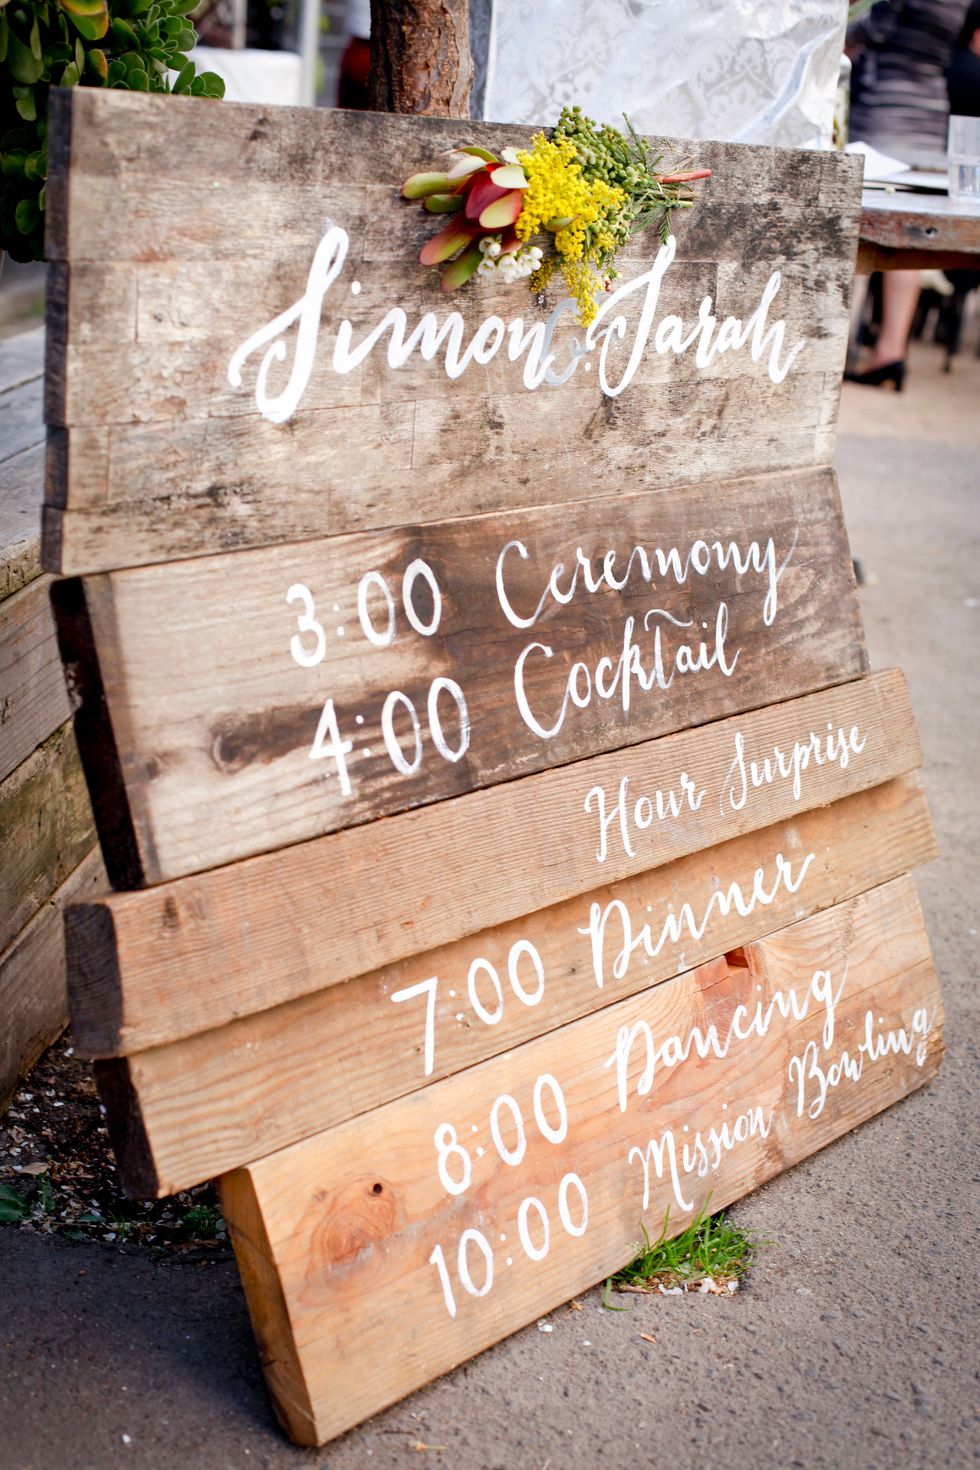 Simon & Sarah
3:00 Ceremony
4:00 Cocktail
Hour Surprise
7:00 Dinner
8:00 Dancing
10:00 Mission Bowling